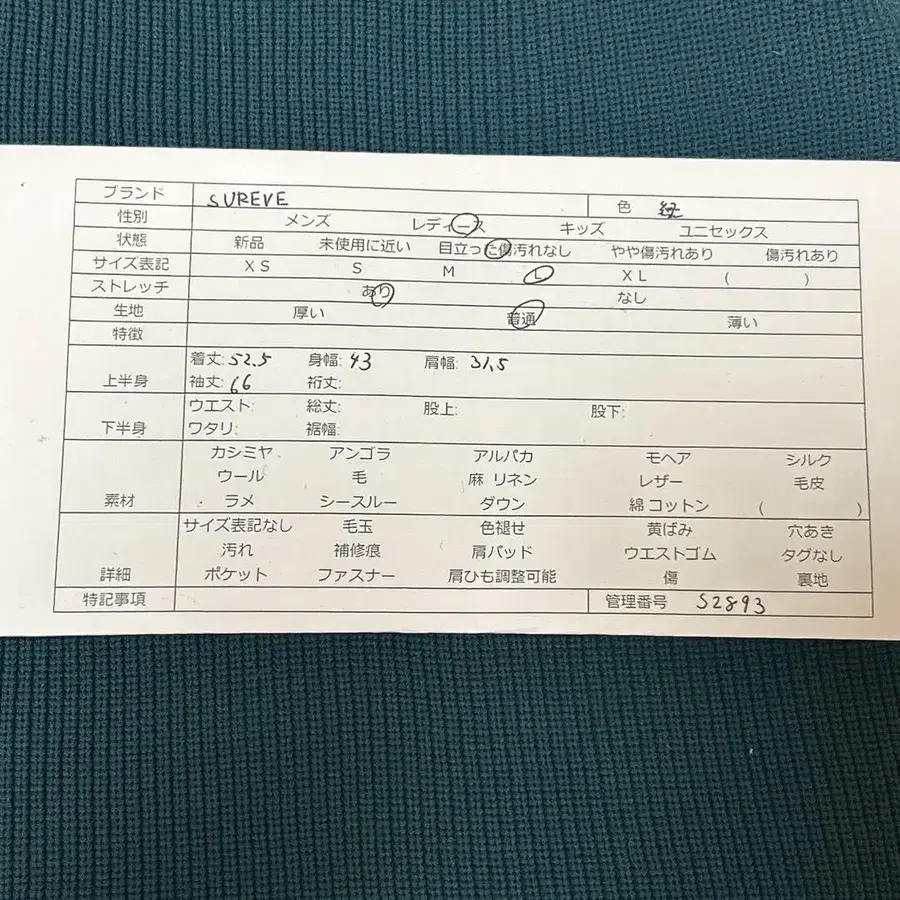 ブランド SUREVE 色
性別 メンズ レディース キッズ ユニセックス
状態 新品 未使用に近い 目立った傷汚れなし やや傷汚れあり 傷汚れあり
サイズ表記 XS S M L XL ( )
ストレッチ あり なし
生地 厚い 普通 薄い
特徴
上半身 着丈:52.5 身幅:43 肩幅:31.5
袖丈:66 裄丈:
下半身 ウエスト: 総丈: 股上: 股下:
ワタリ: 裾幅:
カシミヤ アンゴラ アルパカ モヘア シルク
ウール 毛 麻 リネン レザー 毛皮
素材 ラメ シースルー ダウン 綿 コットン ( )
サイズ表記なし 毛玉 色褪せ 黄ばみ 穴あき
汚れ 補修痕 肩パッド ウエストゴム タグなし
詳細 ポケット ファスナー 肩ひも調整可能 傷 裏地
特記事項 管理番号 S2893